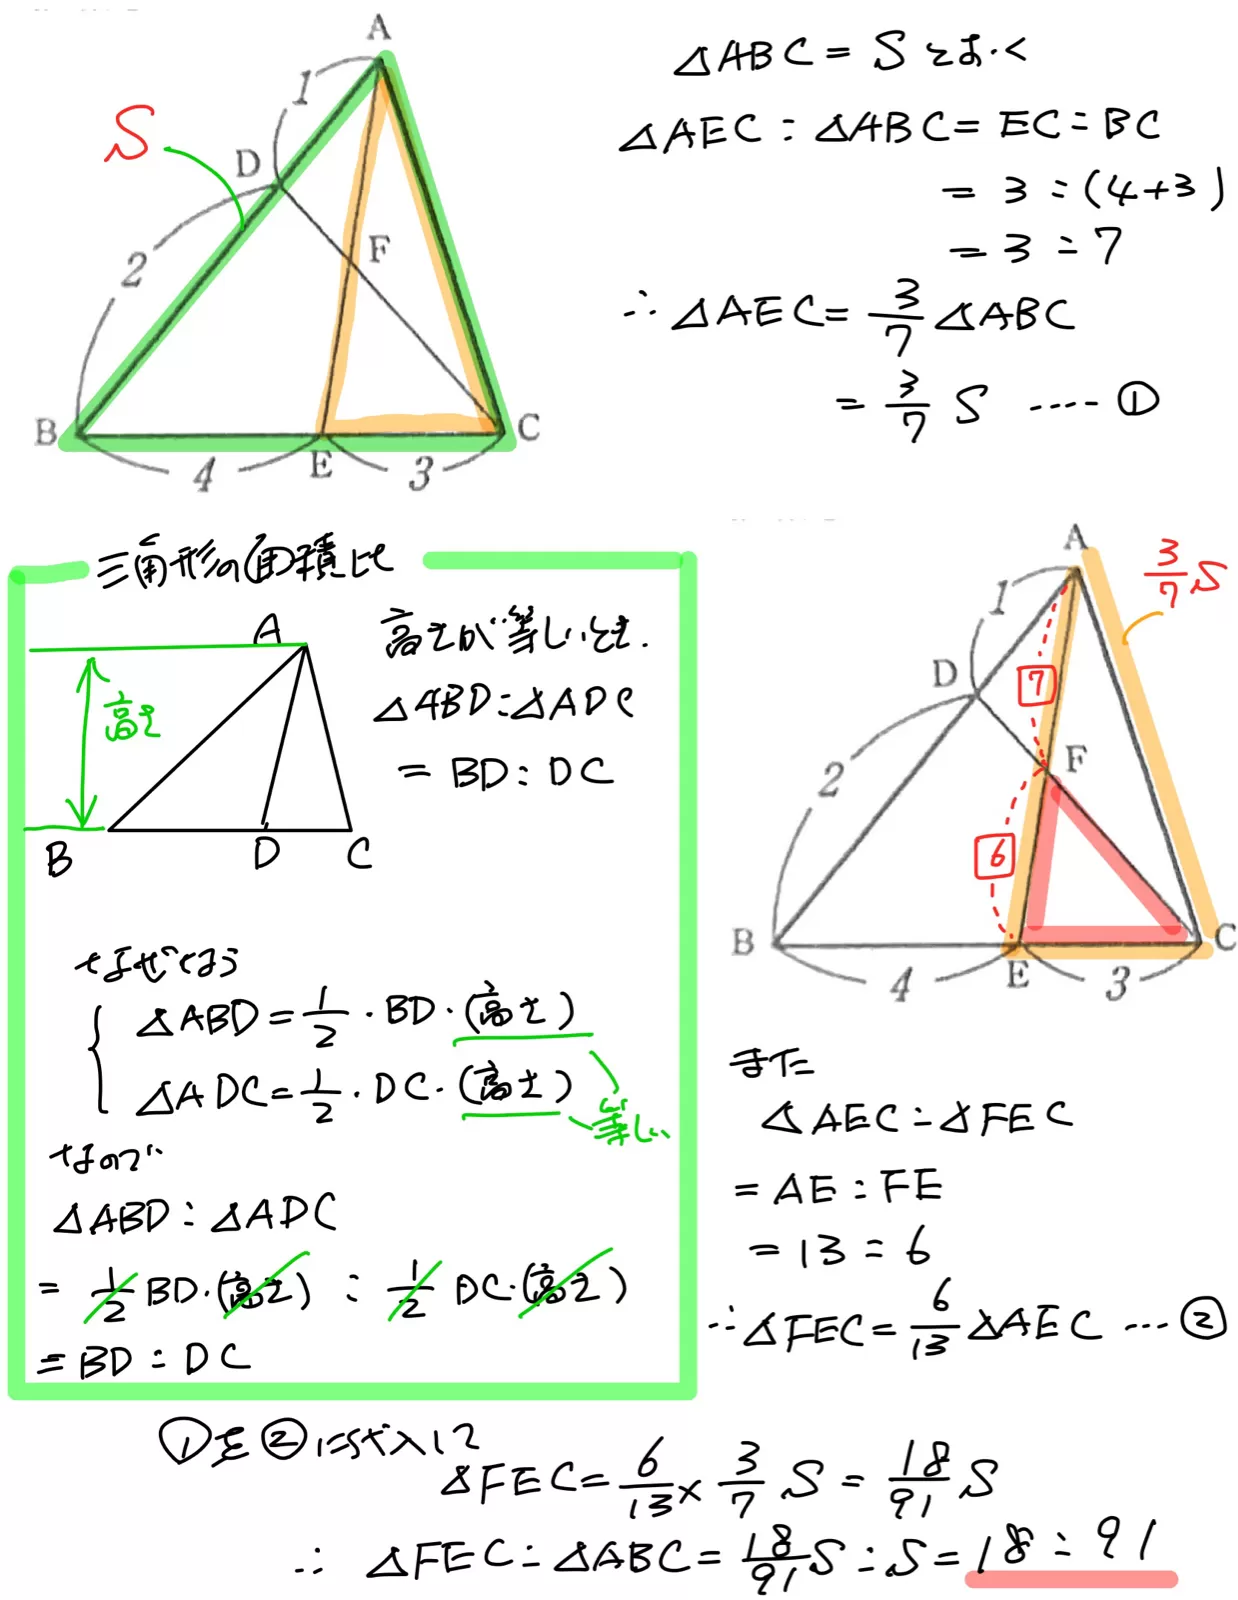 A
1
S
D
2
F
B
C
4
E
3
△ABC = S とおく
△AEC : △ABC = EC : BC
= 3 : (4+3)
= 3 : 7
∴ △AEC = 3/7 △ABC
= 3/7 S ---- ①
三角形の面積比
A
高さ
B
D
C
高さが等しいとき.
△ABD : △ADC
= BD : DC
なぜなら
△ABD = 1/2 · BD · (高さ)
△ADC = 1/2 · DC · (高さ)
等しい
なので
△ABD : △ADC
= 1/2 BD · (高さ) : 1/2 DC · (高さ)
= BD : DC
A
3/7 S
1
D
7
F
2
6
B
C
4
E
3
また
△AEC : △FEC
= AE : FE
= 13 : 6
∴ △FEC = 6/13 △AEC --- ②
①を②に代入して
△FEC = 6/13 × 3/7 S = 18/91 S
∴ △FEC : △ABC = 18/91 S : S = 18 : 91